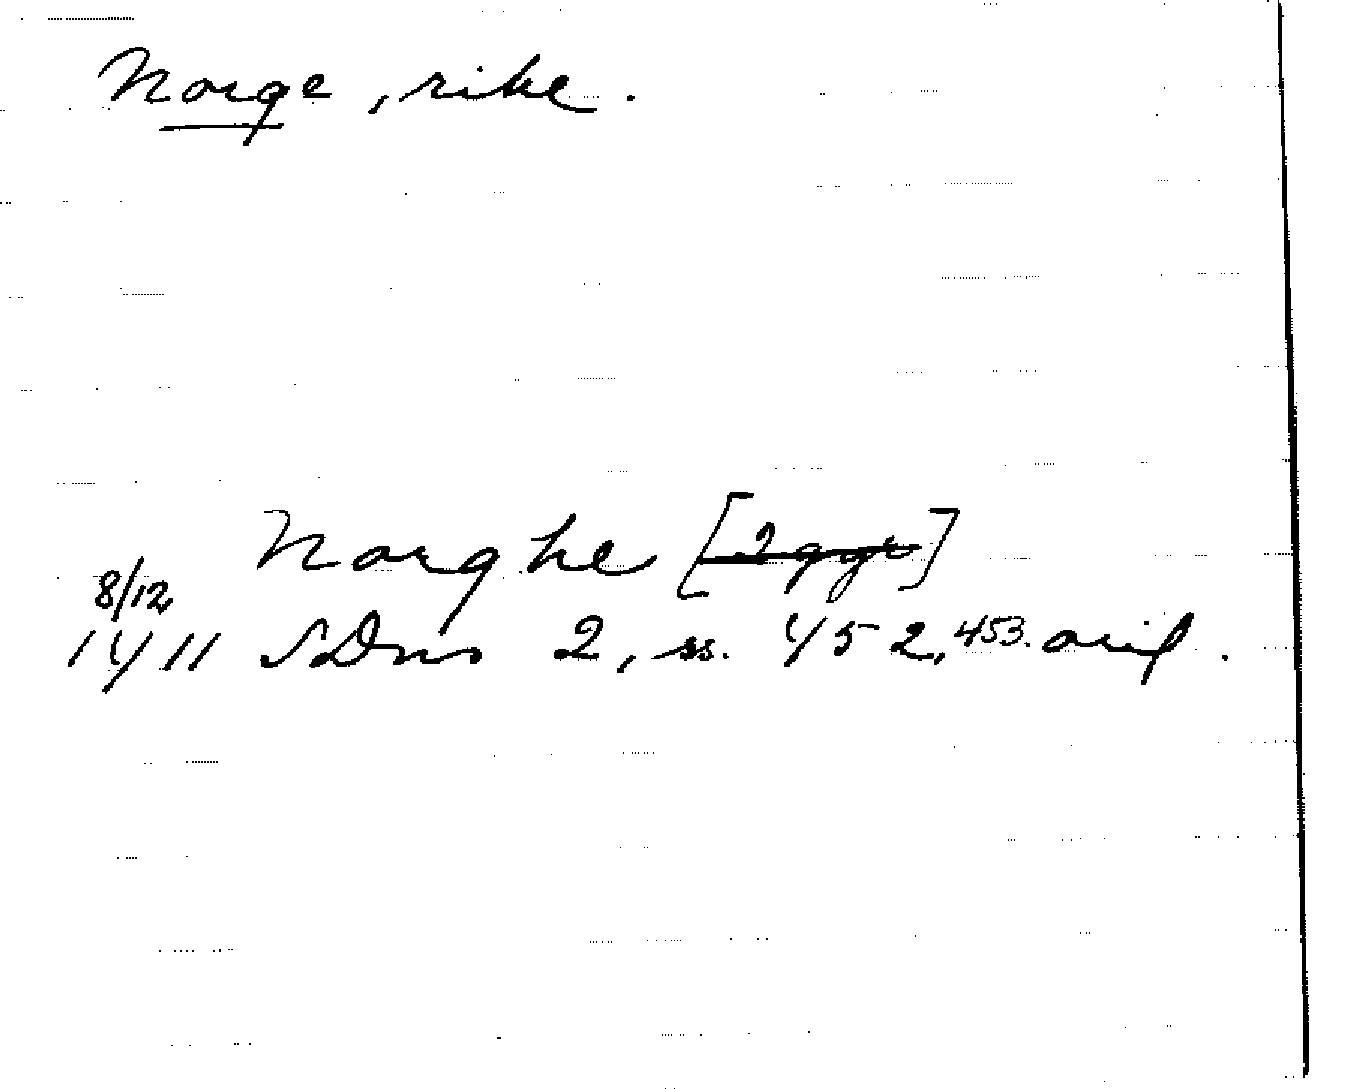 Norge, rike.
Norghe [2 ggr]
8/12
1411 SDns 2, ss. 452, 453. orig.